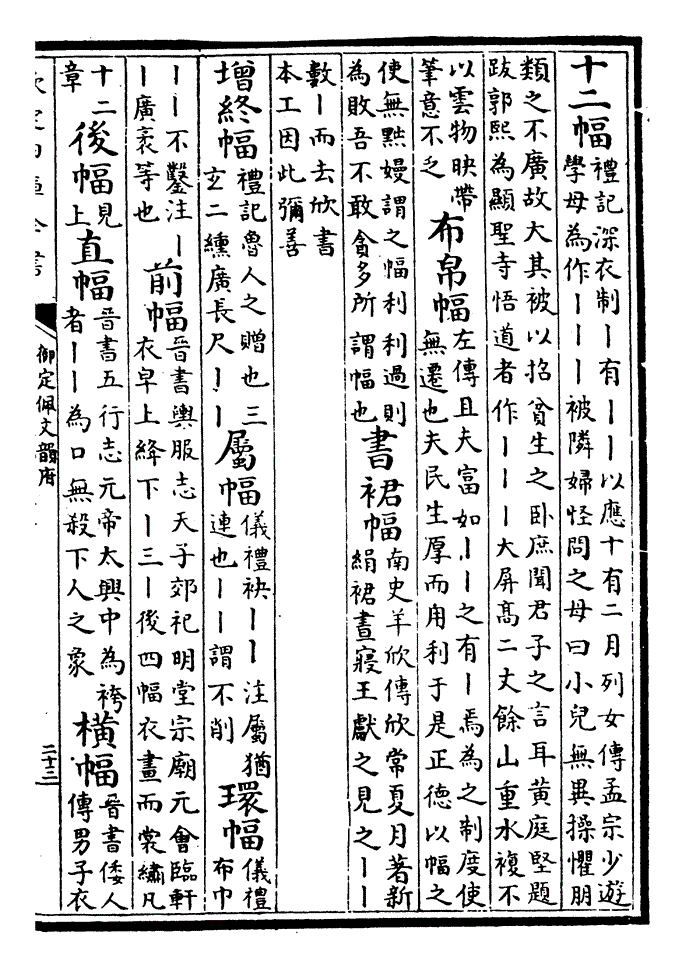 十二幅 禮記深衣制丨有丨丨以應十有二月列女傳孟宗少遊
學母為作丨丨丨被隣婦怪問之母曰小兒無異操懼朋
類之不廣故大其被以招貧生之卧庶聞君子之言耳黄庭堅題
跋郭熙為顯聖寺悟道者作丨丨丨大屏髙二丈餘山重水複不
以雲物映帶
筆意不乏
布帛幅 左傳且夫富如丨丨之有丨焉為之制度使
無遷也夫民生厚而用利于是正德以幅之
使無黜嫚謂之幅利利過則
為敗吾不敢貪多所謂幅也
書裙幅 南史羊欣傳欣常夏月著新
絹裙晝寢王獻之見之丨丨
數丨而去欣書
本工因此彌善
增終幅 禮記魯人之贈也三
玄二纁廣長尺丨丨
屬幅 儀禮袂丨丨注屬猶
連也丨丨謂不削
環幅 儀禮
布巾
丨丨不鑿注丨
丨廣袤等也
前幅 晉書輿服志天子郊祀明堂宗廟元會臨軒
衣皁上絳下丨三丨後四幅衣畫而裳繡凡
十二
章
後幅 見
上
直幅 晉書五行志元帝太興中為袴
者丨丨為口無殺下人之象
橫幅 晉書倭人
傳男子衣
欽定四庫全書
御定佩文韻府
二十三